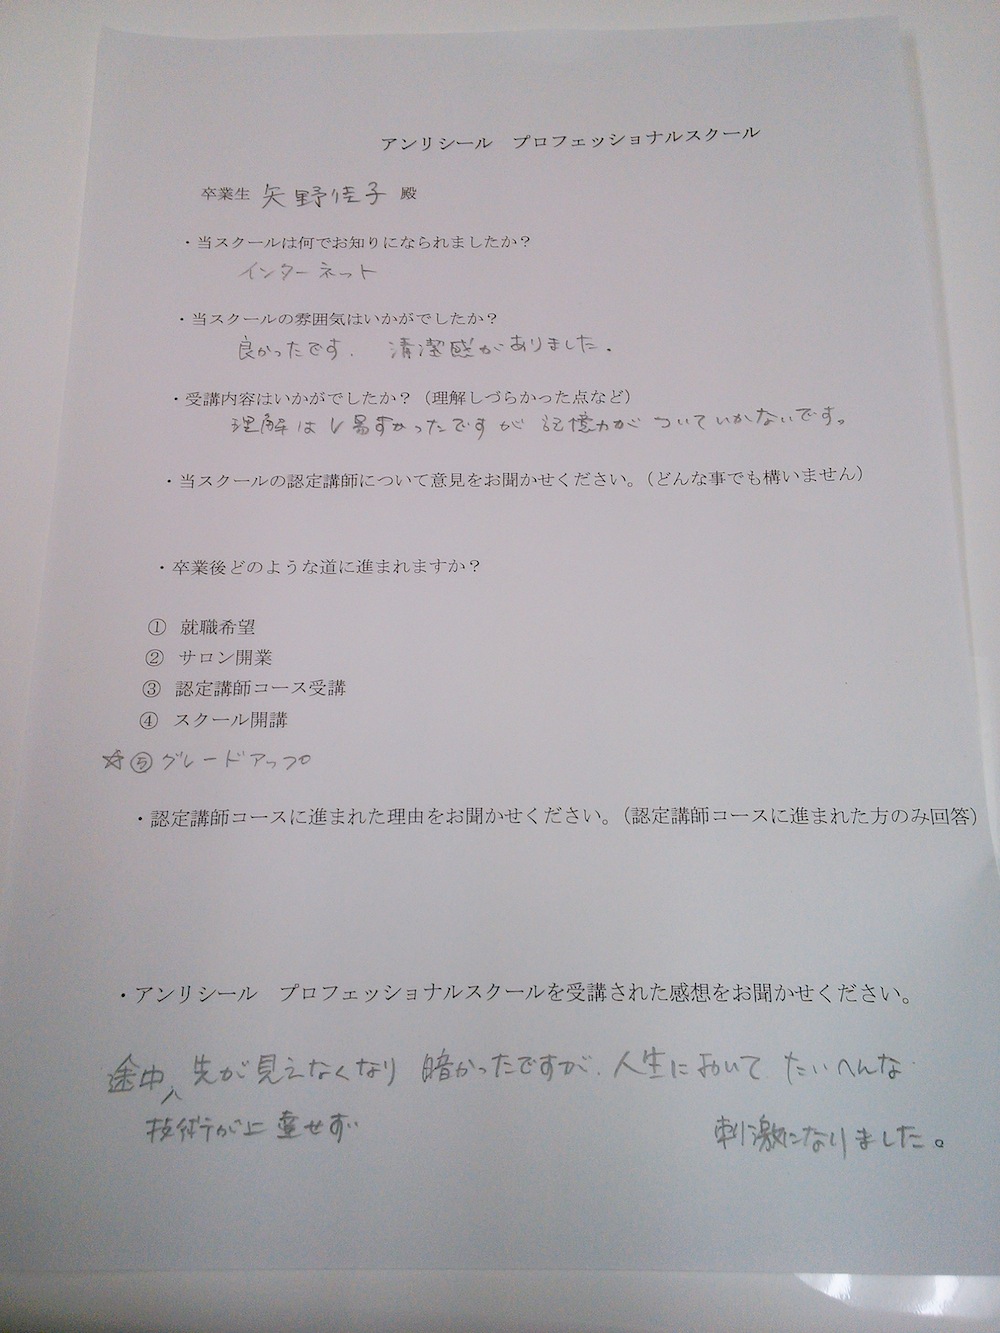 アンリシール　プロフェッショナルスクール
卒業生 矢野佳子 殿
・当スクールは何でお知りになられましたか？
インターネット
・当スクールの雰囲気はいかがでしたか？
良かったです. 清潔感がありました.
・受講内容はいかがでしたか？（理解しづらかった点など）
理解はし易すかったですが 記憶力が ついていかないです。
・当スクールの認定講師について意見をお聞かせください。（どんな事でも構いません）
・卒業後どのような道に進まれますか？
① 就職希望
② サロン開業
③ 認定講師コース受講
④ スクール開講
☆⑤グレードアップ
・認定講師コースに進まれた理由をお聞かせください。（認定講師コースに進まれた方のみ回答）
・アンリシール　プロフェッショナルスクールを受講された感想をお聞かせください。
途中 先が見えなくなり 暗かったですが. 人生において たいへんな
技術が上達せず 刺激になりました。